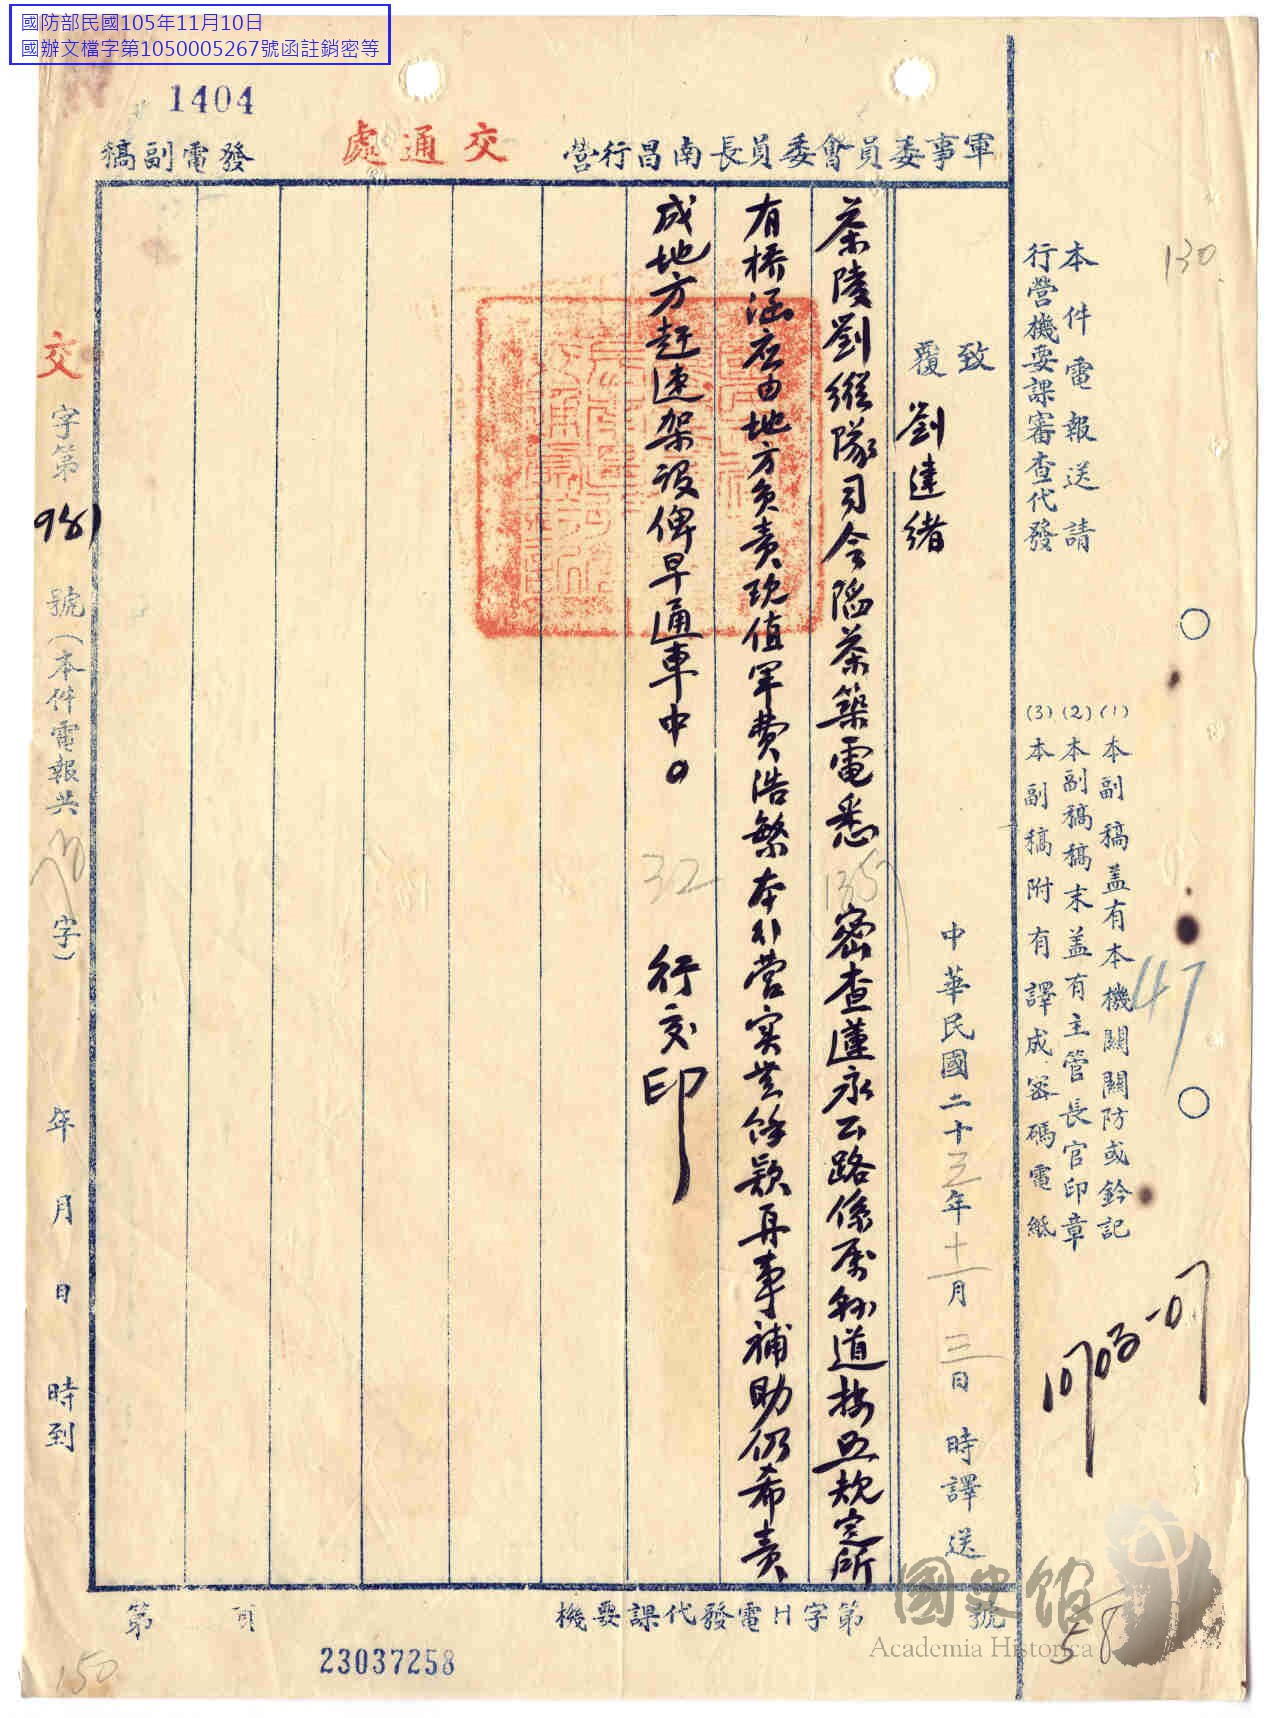 國防部民國105年11月10日
國辦文檔字第1050005267號函註銷密等
1404
軍事委員會委員長南昌行營
交通處
發電副稿
130
本件電報送請
行營機要課審查代發
(1)本副稿蓋有本機關關防或鈐記
(2)本副稿稿末蓋有主管長官印章
(3)本副稿附有譯成密碼電紙
47
致
覆
劉建緒
中華民國二十三年十一月三日 時譯送
茶陵劉縱隊司令 茶築電悉 密查蓮永公路係屬 道按照規定所
有橋涵应由地方負責現值軍費浩繁本行營实無餘款再事補助仍希責
成地方赶速架設俾早通車中。 行交印
1357
32
交
字第981號(本件電報共 字) 年 月 日 時到
機要課代發電H字第 號
第 頁
23037258
150
58
國史館
Academia Historica